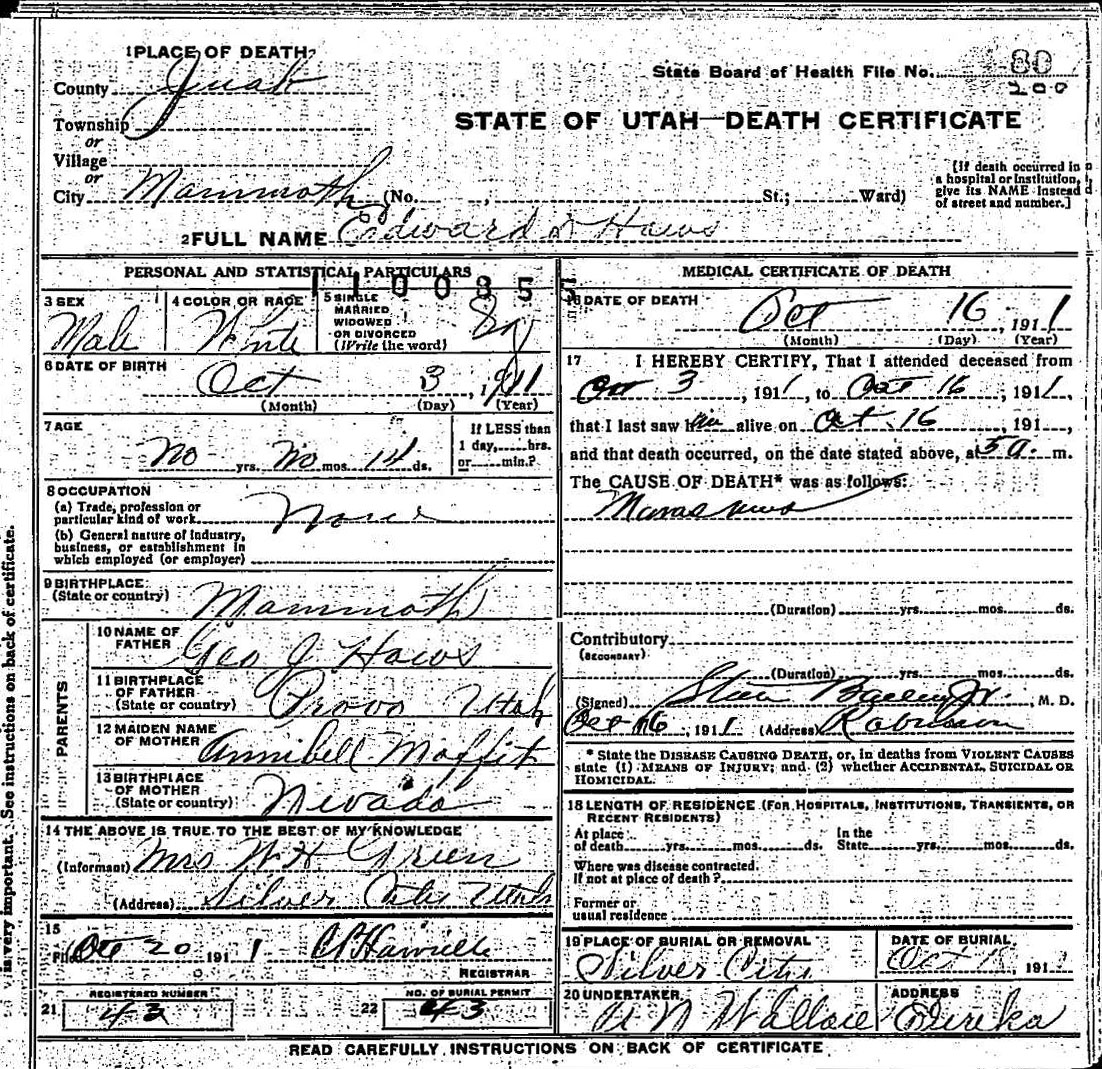 1 PLACE OF DEATH
County Juab
State Board of Health File No. 80
200
Township
or
Village
or
City Mammoth (No. , St.; Ward)
STATE OF UTAH—DEATH CERTIFICATE
[If death occurred in a hospital or institution, give its NAME instead of street and number.]
2 FULL NAME Edward Haws
PERSONAL AND STATISTICAL PARTICULARS
110085
3 SEX
Male
4 COLOR OR RACE
White
5 SINGLE
MARRIED
WIDOWED
OR DIVORCED
(Write the word)
6 DATE OF BIRTH
Oct 3, 1911
(Month) (Day) (Year)
7 AGE
No yrs. No mos. 14 ds.
If LESS than
1 day, hrs.
or min.?
8 OCCUPATION
(a) Trade, profession or
particular kind of work None
(b) General nature of industry,
business, or establishment in
which employed (or employer)
9 BIRTHPLACE
(State or country) Mammoth
PARENTS
10 NAME OF
FATHER Geo J Haws
11 BIRTHPLACE
OF FATHER
(State or country) Provo Utah
12 MAIDEN NAME
OF MOTHER Annibell Moffit
13 BIRTHPLACE
OF MOTHER
(State or country) Nevada
14 THE ABOVE IS TRUE TO THE BEST OF MY KNOWLEDGE
(Informant) Mrs W H Green
(Address) Silver City Utah
15
Filed Oct 20 1911
REGISTRAR
21 REGISTERED NUMBER
43
22 NO. OF BURIAL PERMIT
43
MEDICAL CERTIFICATE OF DEATH
16 DATE OF DEATH
Oct 16, 1911
(Month) (Day) (Year)
17 I HEREBY CERTIFY, That I attended deceased from
Oct 3, 1911, to Oct 16, 1911,
that I last saw him alive on Oct 16, 191 ,
and that death occurred, on the date stated above, at 5 a. m.
The CAUSE OF DEATH* was as follows:
Marasmus
(Duration) yrs. mos. ds.
Contributory
(SECONDARY)
(Duration) yrs. mos. ds.
(Signed) Steele Bailey Jr. M. D.
Oct 16, 1911 (Address) Robinson
* State the DISEASE CAUSING DEATH, or, in deaths from VIOLENT CAUSES
state (1) MEANS OF INJURY; and (2) whether ACCIDENTAL, SUICIDAL OR
HOMICIDAL.
18 LENGTH OF RESIDENCE (FOR HOSPITALS, INSTITUTIONS, TRANSIENTS, OR
RECENT RESIDENTS)
At place In the
of death yrs. mos. ds. State yrs. mos. ds.
Where was disease contracted,
If not at place of death?
Former or
usual residence
19 PLACE OF BURIAL OR REMOVAL
Silver City
DATE OF BURIAL
Oct 18, 1911
20 UNDERTAKER
Wallace
ADDRESS
Eureka
READ CAREFULLY INSTRUCTIONS ON BACK OF CERTIFICATE
is very important. See instructions on back of certificate.